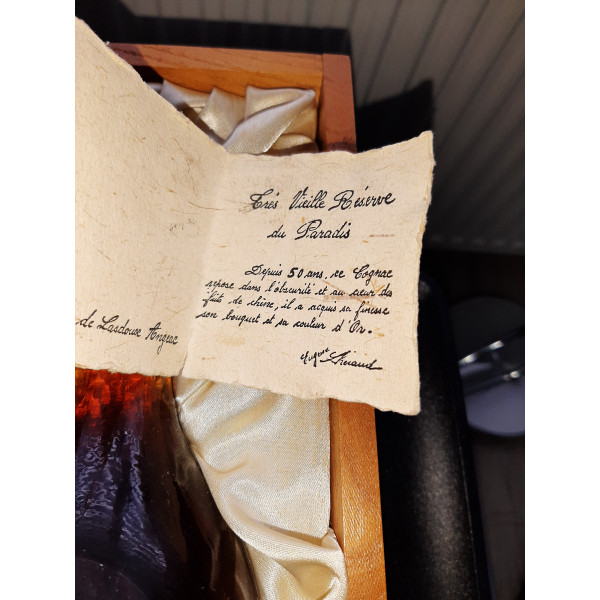 de Lasdoux Angeac
Très Vieille Réserve
du Paradis
Depuis 50 ans, ce Cognac
repose dans l'obscurité et au cœur de
fûts de chêne, il a acquis sa finesse
son bouquet et sa couleur d'Or.